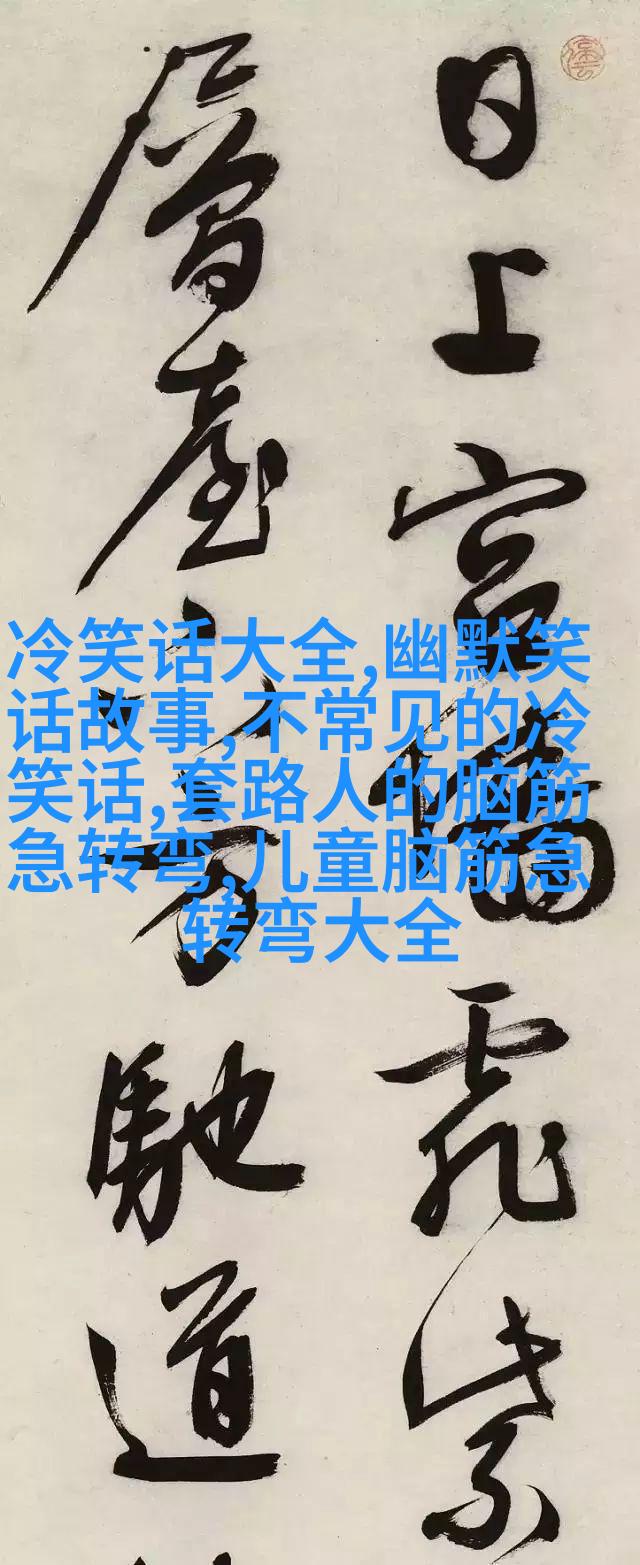 日上宮墻飛紫
層臺下方馳道
冷笑话大全,幽默笑
话故事,不常见的冷
笑话,套路人的脑筋
急转弯,儿童脑筋急
转弯大全